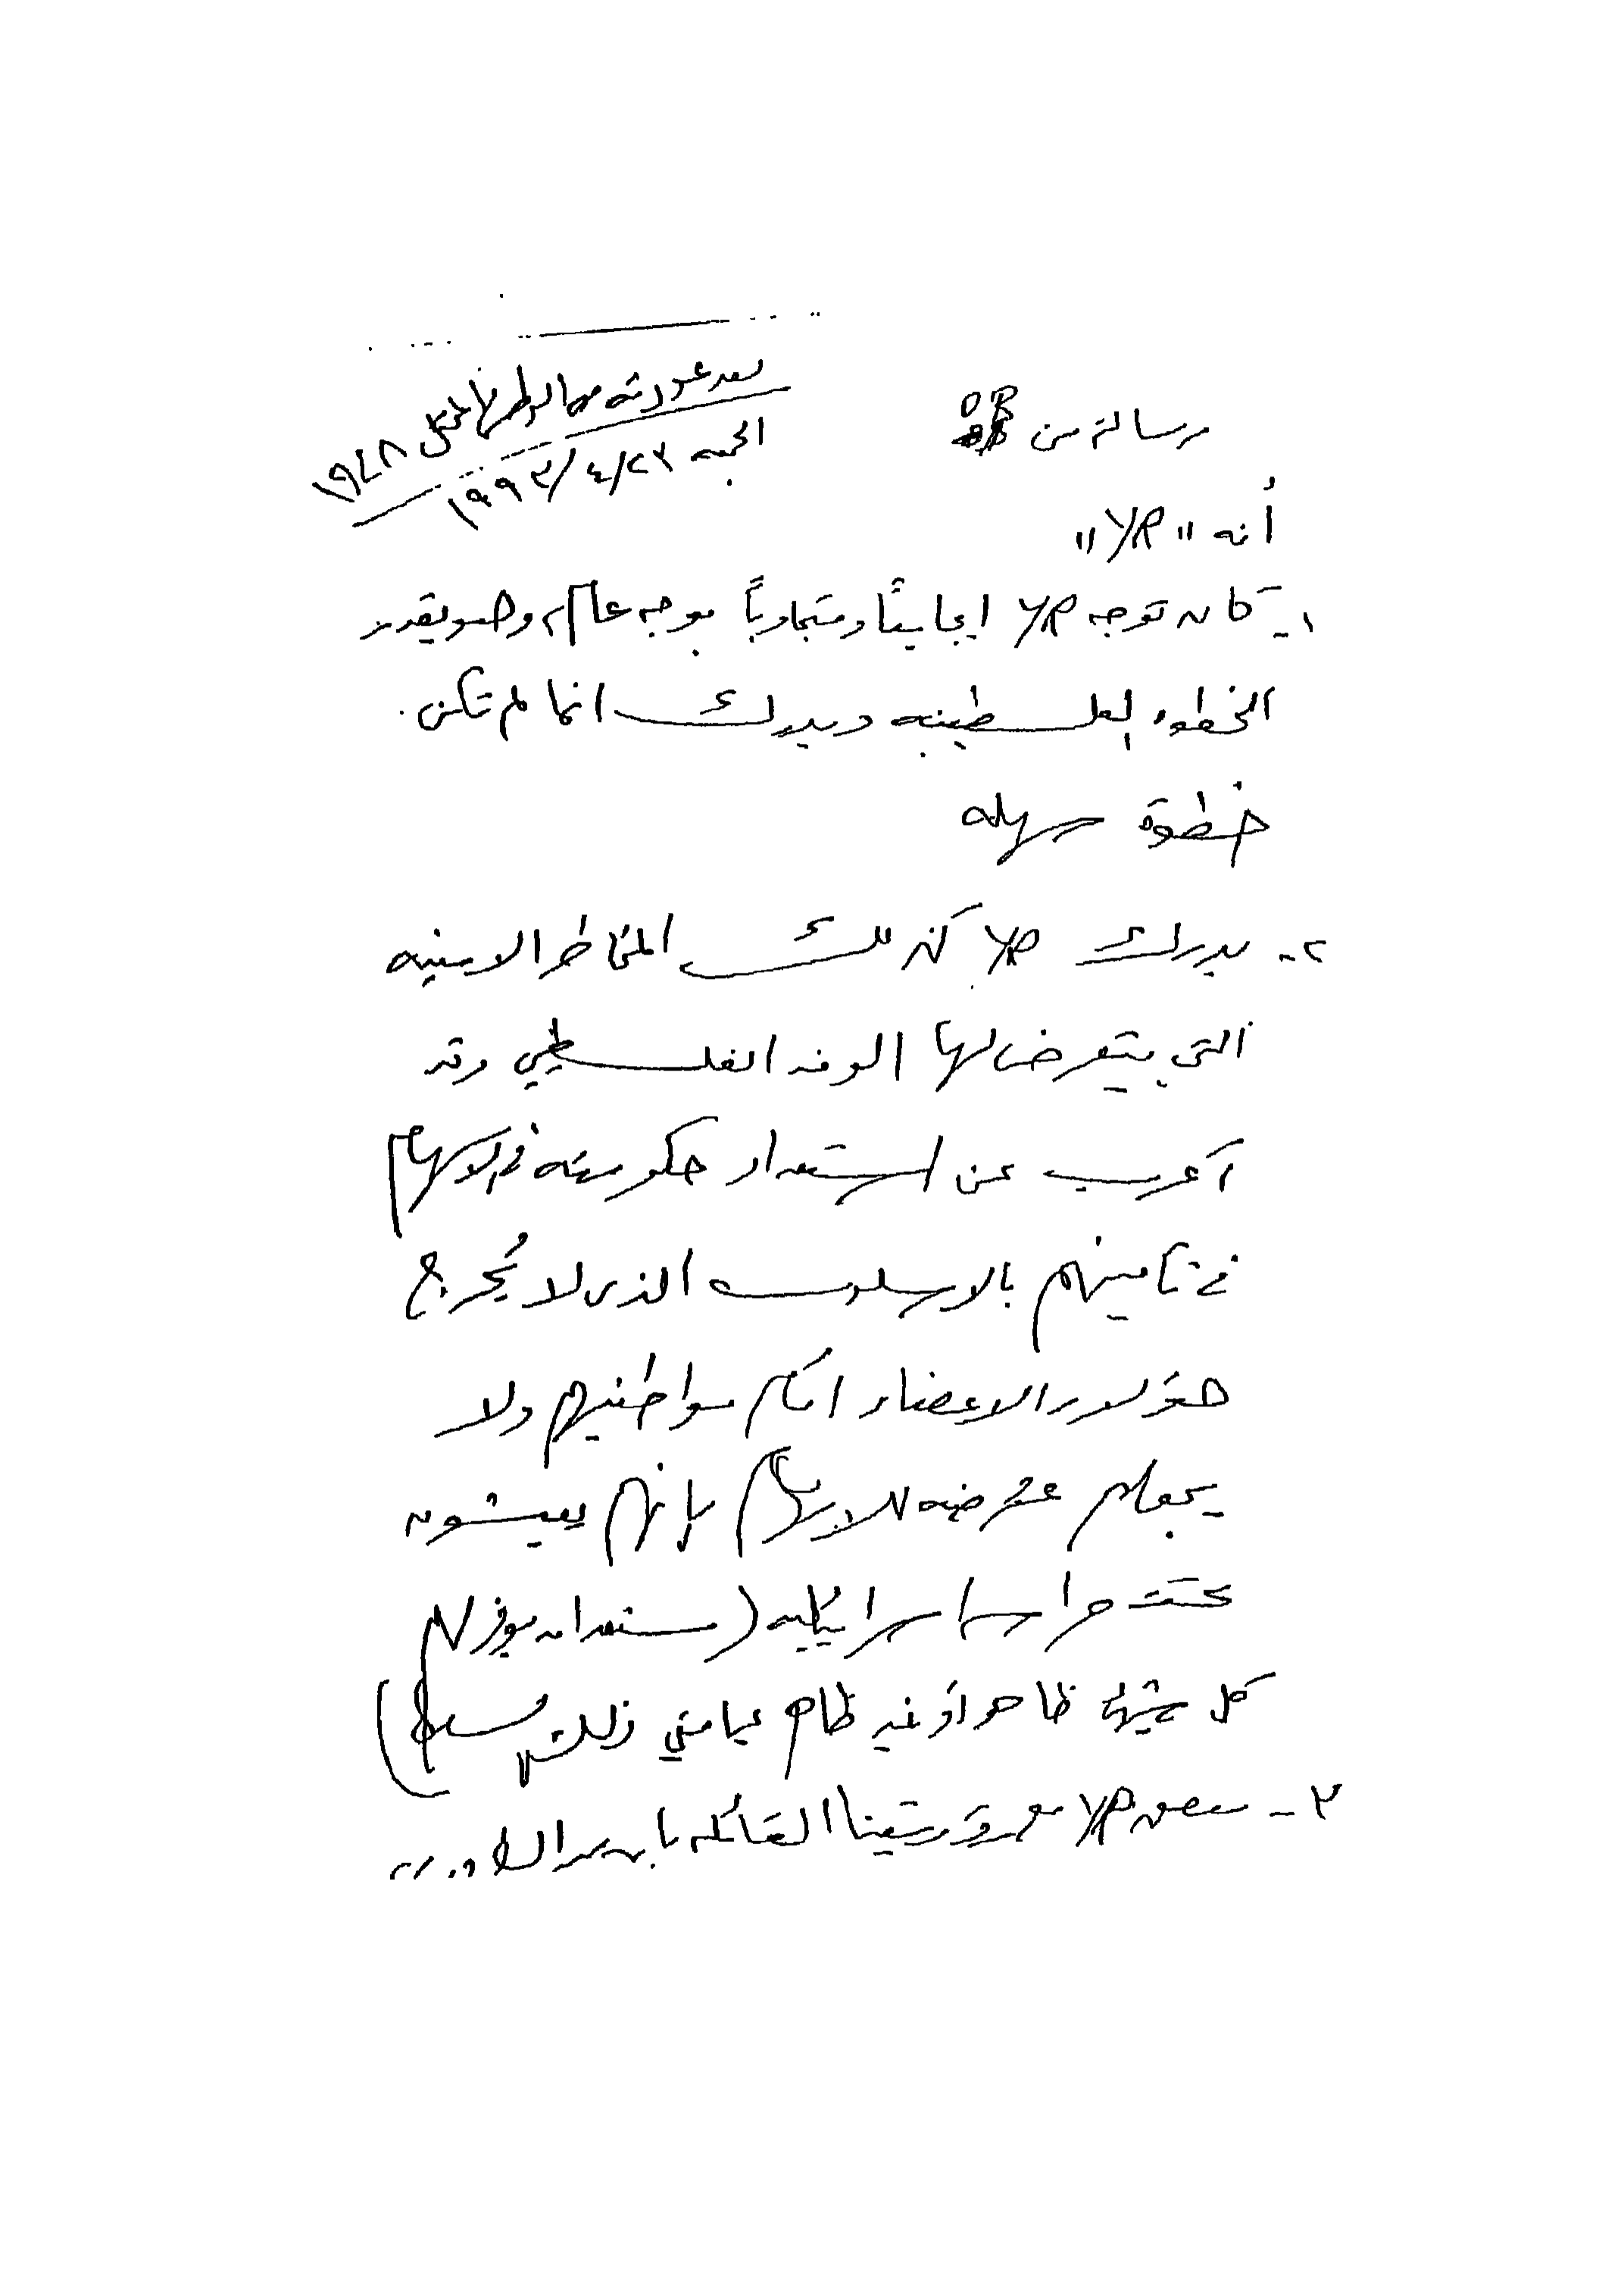 بعد عودته من الوطن المحتل ١٩٤٨
الجمعه ١٩٩٣/٤/٢٣
رسالة من
أنه "YR"
١- كان توجه YR ايجابياً ومتجاوباً بوجه عام، وهو يقدر
الخطوه الفلسطينيه ويدرك انها لم تكن
خطوة سهله
٢- يدرك YR كذلك المخاطر الامنيه
التي يتعرض لها الوفد الفلسطيني وقد
أعرب عن استعداد حكومته في الاسهام
في تأمينهم بالاسلوب الذى لا يُحرج
هؤلاء الاعضاء امام مواطنيهم ولا
يجعلهم عرضه للاتهام بأنهم يعيشون
تحت حراسه اسرائيليه (مستعد ان يوفر لهم
كل شيئ ظاهر أو غير ظاهر بما في ذلك
٣- YR مع رؤيتنا القائله بان